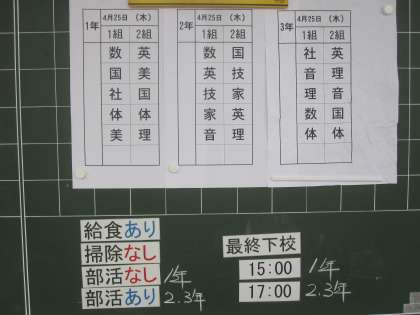 1年 4月25日 (木)
1組 2組
数 英
国 美
社 国
体 体
美 理
2年 4月25日 (木)
1組 2組
数 国
英 技
技 家
家 英
音 理
3年 4月25日 (木)
1組 2組
社 英
音 理
理 音
数 国
体 体
給食あり
掃除なし
部活なし 1年
部活あり 2.3年
最終下校
15:00 1年
17:00 2.3年